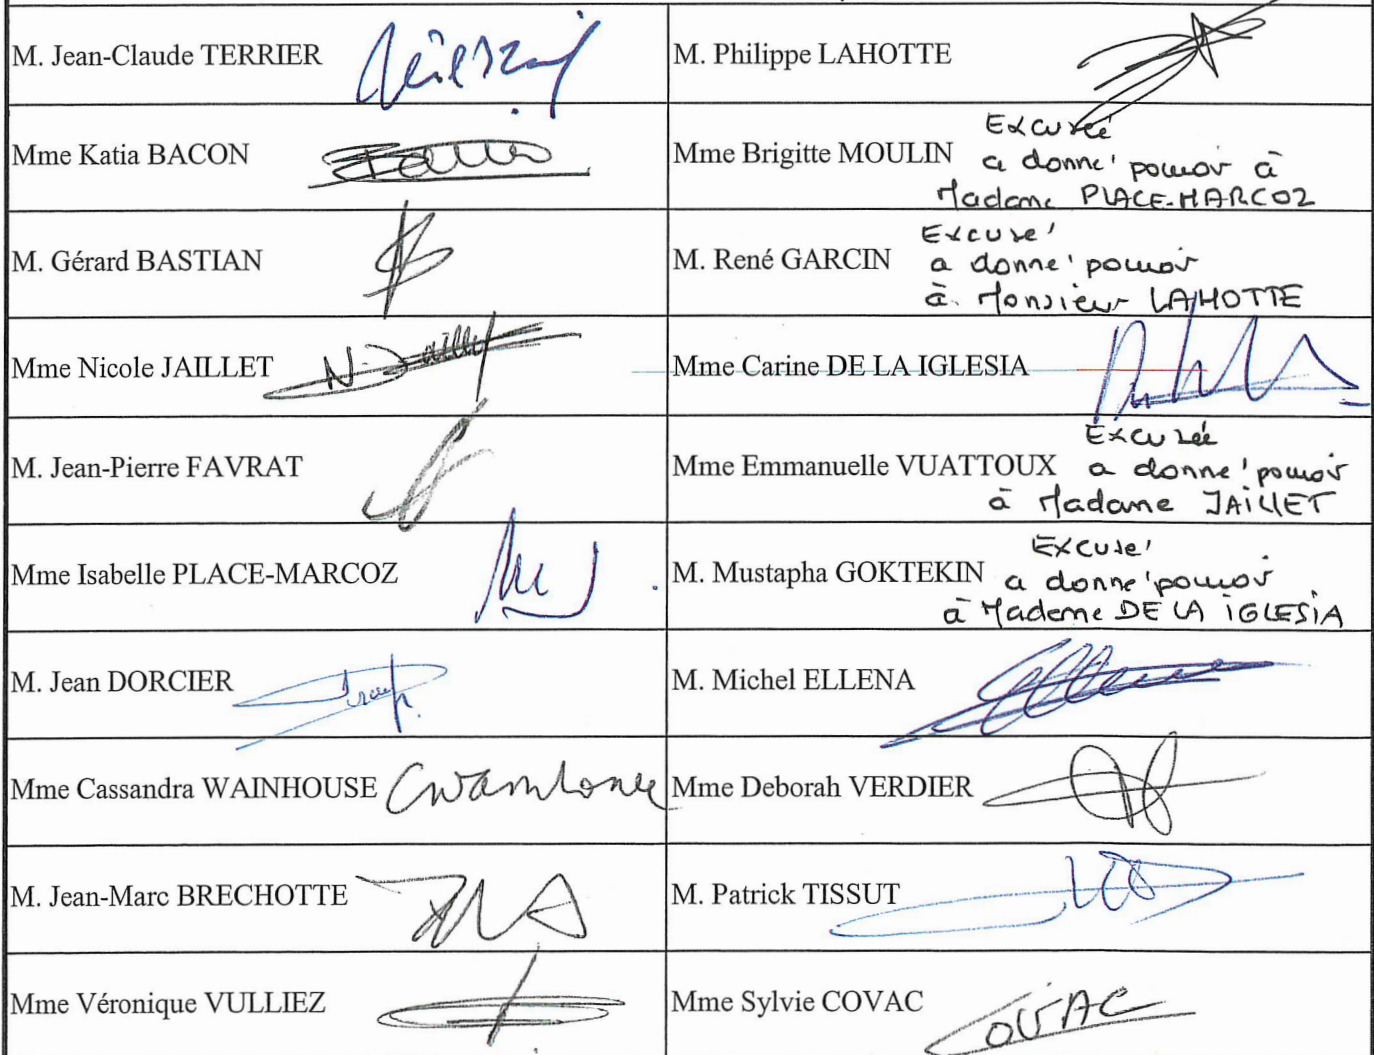 M. Jean-Claude TERRIER
M. Philippe LAHOTTE
Mme Katia BACON
Mme Brigitte MOULIN
Excusée
a donné pouvoir à
Madame PLACE-MARCOZ
M. Gérard BASTIAN
M. René GARCIN
Excusé
a donné pouvoir
à Monsieur LAHOTTE
Mme Nicole JAILLET
N. Jaillet
Mme Carine DE LA IGLESIA
M. Jean-Pierre FAVRAT
Mme Emmanuelle VUATTOUX
Excusée
a donné pouvoir
à Madame JAILLET
Mme Isabelle PLACE-MARCOZ
M. Mustapha GOKTEKIN
Excusé
a donné pouvoir
à Madame DE LA IGLESIA
M. Jean DORCIER
M. Michel ELLENA
Mme Cassandra WAINHOUSE
Mme Deborah VERDIER
M. Jean-Marc BRECHOTTE
M. Patrick TISSUT
Mme Véronique VULLIEZ
Mme Sylvie COVAC
COVAC